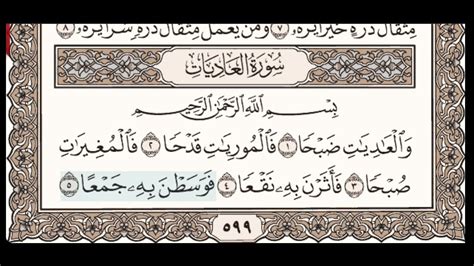 مِثْقَالَ ذَرَّةٍ خَيْرًا يَرَهُۥ ٧ وَمَن يَعْمَلْ مِثْقَالَ ذَرَّةٍ شَرًّا يَرَهُۥ ٨
سُورَةُ الْعَادِيَاتِ
بِسْمِ اللَّهِ الرَّحْمَٰنِ الرَّحِيمِ
وَالْعَٰدِيَٰتِ ضَبْحًا ١ فَالْمُورِيَٰتِ قَدْحًا ٢ فَالْمُغِيرَٰتِ
صُبْحًا ٣ فَأَثَرْنَ بِهِۦ نَقْعًا ٤ فَوَسَطْنَ بِهِۦ جَمْعًا ٥
٥٩٩